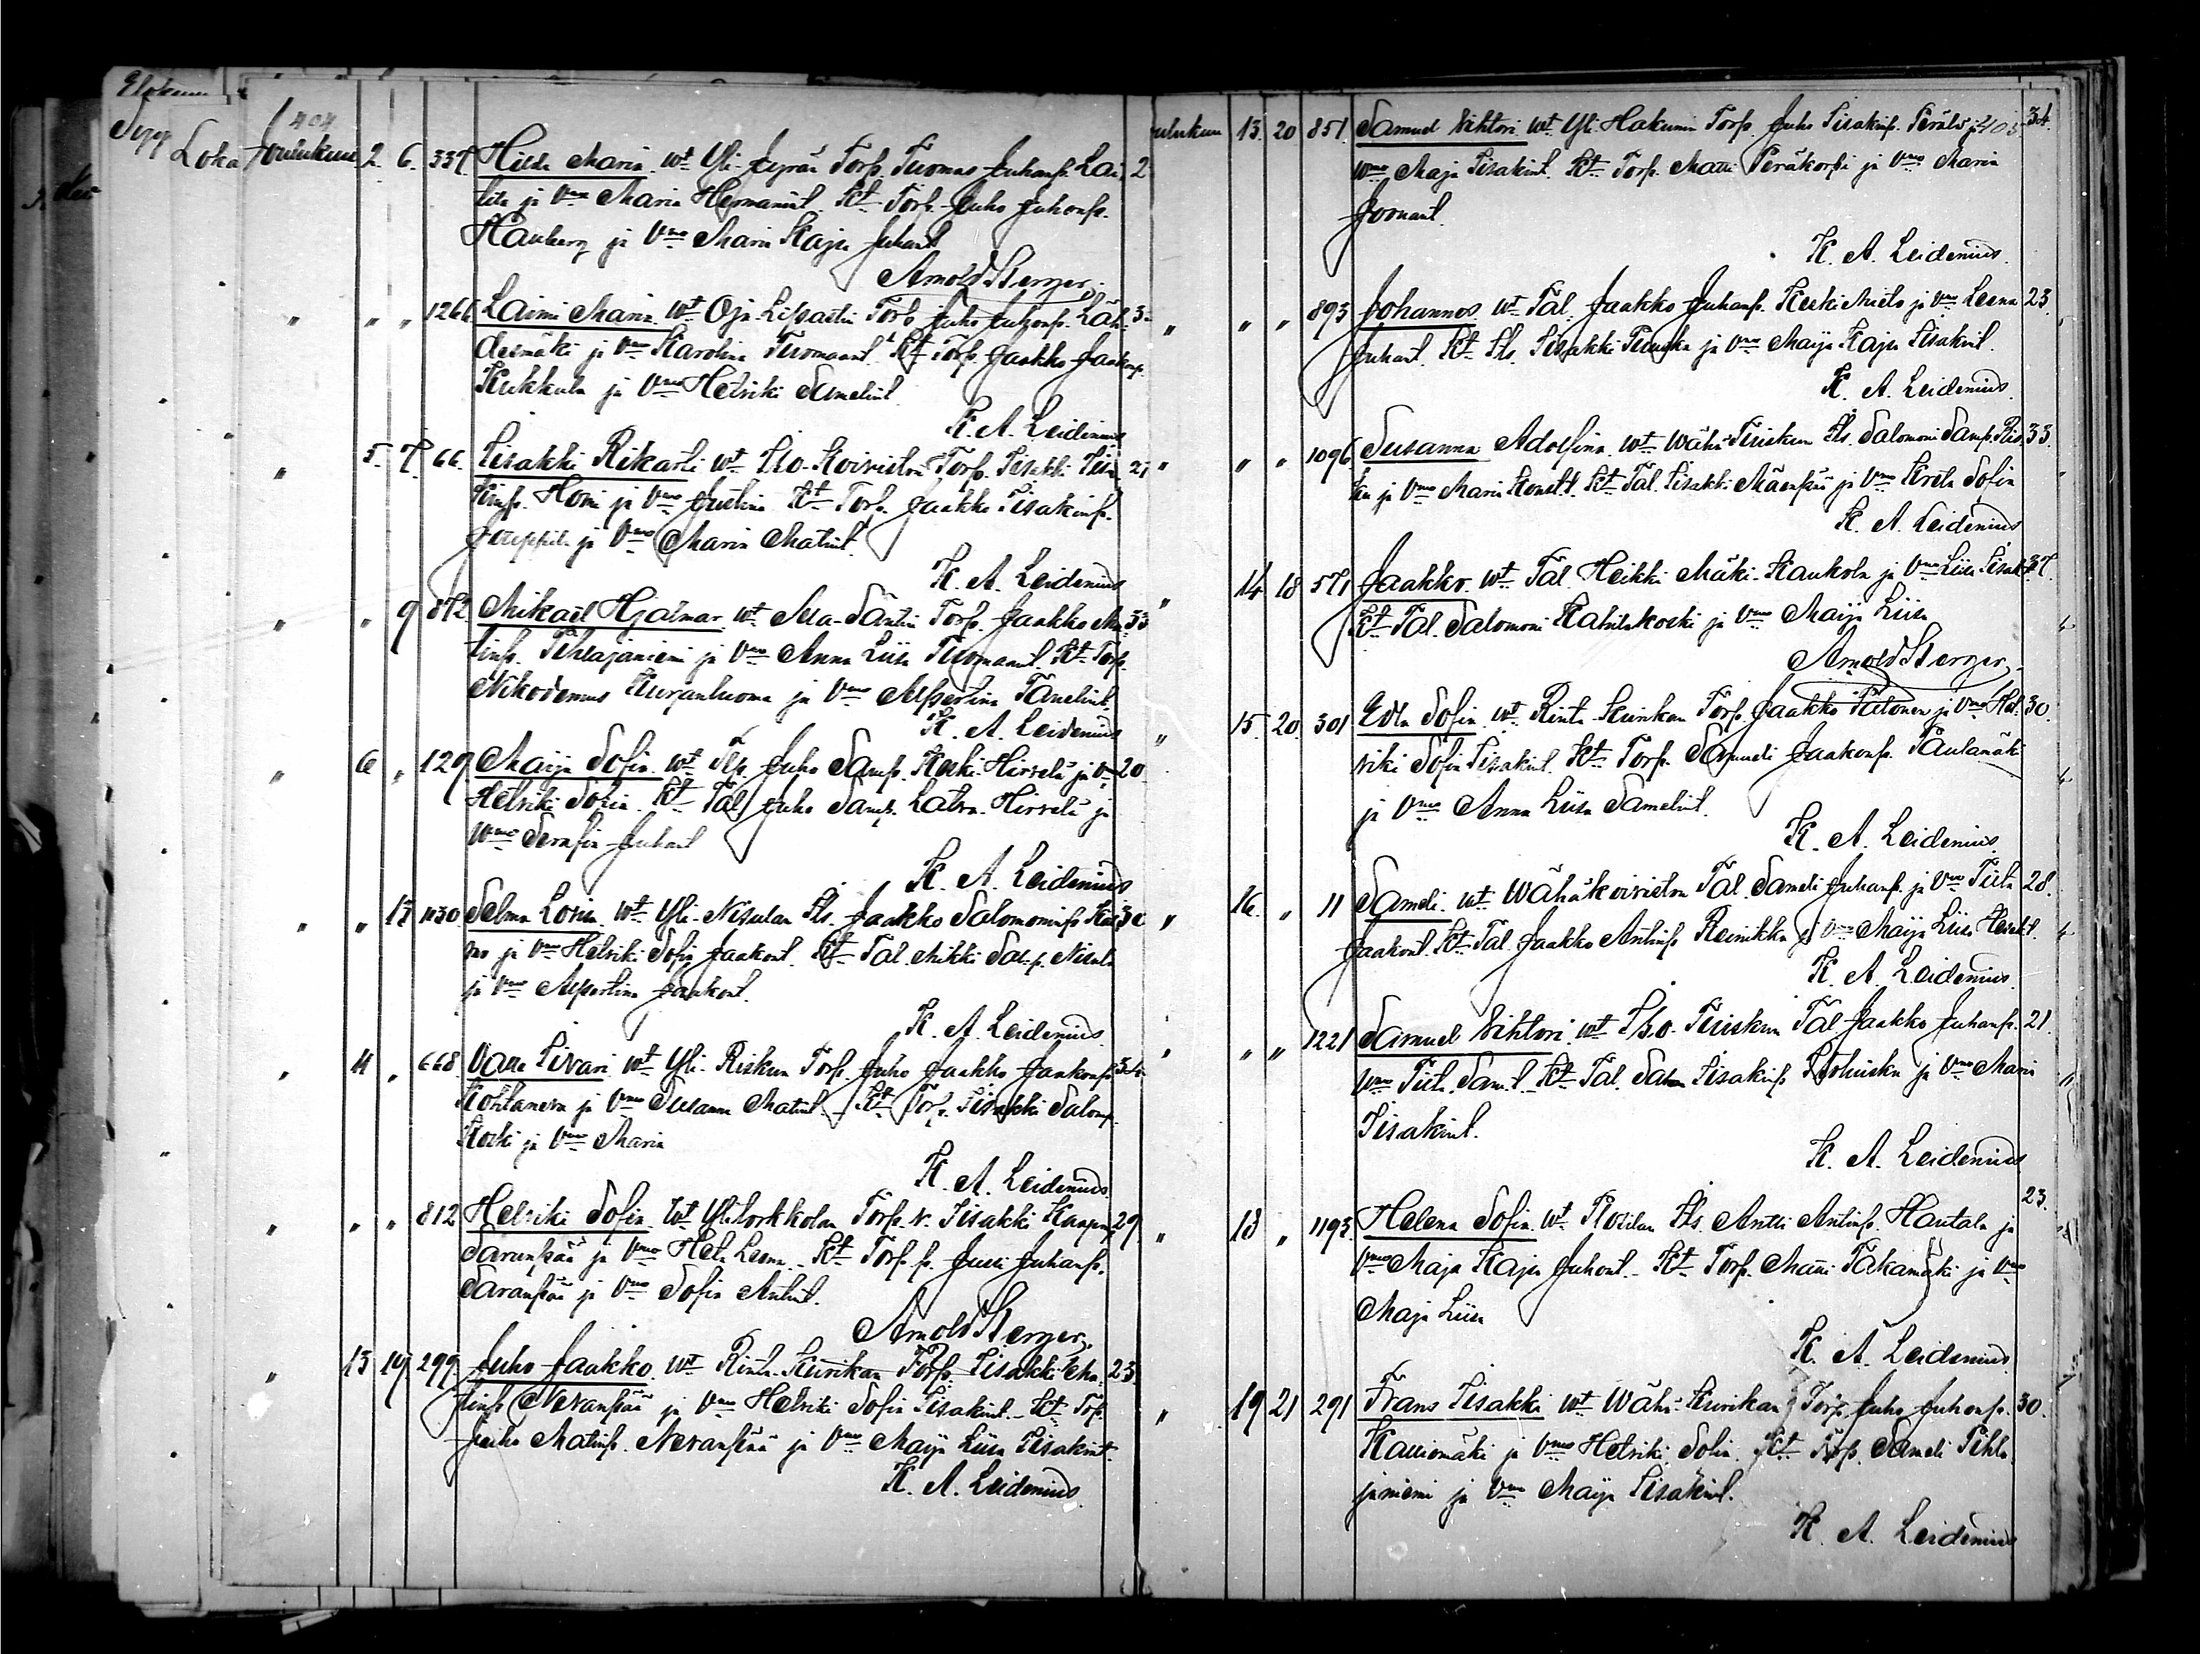 Elokuun
Syys
Loka
404
Joulukuu 2. 6. 337. Hilda Maria. wt Yli-Jyrän Torp. Tuomas Juhanp. Lai 2
tila ja Vmo Maria Hermanint. Kt Torp. Juho Juhonp.
Hauberg ja Vmo Maria Kajsa Juhont
Arnold Berger.
" " " 1266 Laimi Maria. wt Oja-Lipastin Torp Juho Juhonp. Läh 3
desmäki ja Vmo Karolina Tuomaant. Kt Torp. Jaakko Jaakonp.
Kukkula ja Vmo Helviki Samelint
K. A. Leidenius
" 5. 7. 66. Iisakki Rikarti wt Iso-Koiviston Torp. Iisakki Iisa 21
kinp. Homi ja Vmo Justina Kt Torp. Jaakko Iisakinp.
ja Vmo Maria Matint.
K. A. Leidenius
" " 9 872 Mikael Hjalmar. wt Ala-Säntin Torp. Jaakko Ma 33
tinp. Pihlajaniemi ja Vmo Anna Liisa Tuomaant. Kt Torp.
Nikodemus Kurjanluoma ja Vmo Alpertina Tanelint.
K. A. Leidenius
" 6 " 129 Maija Sofia. wt Juho Samp. Keski-Hirvelä ja Vmo 20
Helviki Sofia. Kt Tal. Juho Samp. Latva-Hirvelä ja
Vmo Serafia Juhont
K. A. Leidenius
" " 13 1030 Selma Lovisa. wt Yli-Nisulan Its. Jaakko Salomoninp 30
ja Vmo Helviki Sofia Jaakont. Kt Tal. Mikki Sal.p. Nisula
ja Vmo Alpertina Jaakont.
K. A. Leidenius
" 11 " 668 Iivari wt Yli-Riskun Torp. Juho Jaakko Jaakonp 34
Kohtaneva ja Vmo Susanna Matint. Kt Torp. Iisakki Salomp.
Koski ja Vmo Maria
K. A. Leidenius
" " " 812 Helviki Sofia. wt Ylitorkkolan Torp. v. Iisakki Kaapp. 29
Saranpää ja Vmo Leena. Kt Torp. p. Jussi Juhanp.
Saranpää ja Vmo Sofia Antint.
Arnold Berger.
" 13 19 299 Juho Jaakko. wt Rinta-Kuirikan Torp. Iisakki Ma 23
tinp. Nevanpää ja Vmo Helviki Sofia Iisakint. Kt Torp.
Juho Matinp. Nevanpää ja Vmo Maija Liisa Iisakint.
K. A. Leidenius
ulukuu 13. 20 851. Samuel Vihtori wt Yli-Hakunin Torp. Juho Iisakinp. Perälä ja 405 34.
Vmo Maja Iisakint. Kt Torp. Matti Peräkorpi ja Vmo Maria
Joonant.
K. A. Leidenius.
" " " 893 Johannes. wt Tal. Jaakko Juhanp. Keski Mieto ja Vmo Leena 23
Juhont. Kt Its. Iisakki ja Vmo Maija Kajsa Iisakint.
K. A. Leidenius
" " " 1096 Susanna Adolfina. wt Wähä-Tuiskun Its. Salomoni Samp. Ris 33
ku ja Vmo Maria Konstt. Kt Tal. Iisakki Mäenpää ja Vmo Kreta Sofia
K. A. Leidenius
" 14 18 571 Jaakko. wt Tal. Heikki Mäki-Kaukola ja Vmo Liisa Iisakt 37.
Kt Tal. Salomoni Kahilakoski ja Vmo Maija Liisa
Arnold Berger.
" 15. 20. 301 Edla Sofia. wt Rinta-Kuirikan Torp. Jaakko Pätönen ja Vmo Hel 30.
viki Sofia Iisakint. Kt Torp. Sameli Jaakonp. Paulamäki
ja Vmo Anna Liisa Samelint.
K. A. Leidenius.
" 16. " 11 Sameli. wt Wähäkoiviston Tal. Sameli Juhanp. ja Vmo Tiita 28.
Jaakont. Kt Tal. Jaakko Antinp. Reinikka ja Vmo Maija Liisa
K. A. Leidenius
" " " 1221 Samuel Vihtori. wt Iso-Tuiskun Tal. Jaakko Juhanp. 21.
Vmo Tiita Sam.t. Kt Tal. Iisakinp. ja Vmo Maria
Iisakint.
K. A. Leidenius
" 18 " 1193 Helena Sofia. wt Its. Antti Antinp. Hautala ja 23.
Vmo Maja Kajsa Juhont. Kt Torp. Matti Takamäki ja Vmo
Maja Liisa
K. A. Leidenius
" 19 21 291 Frans Iisakki wt Wähä-Kuirikan Torp. Juho Juhonp. 30.
Kalliomäki ja Vmo Helviki Sofia. Kt Torp. Sameli Pihla
janiemi ja Vmo Maija Iisakint.
K. A. Leidenius